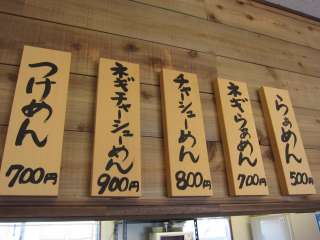 らぁめん
500円
ネギらぁめん
700円
チャーシューめん
800円
ネギチャーシューめん
900円
つけめん
700円